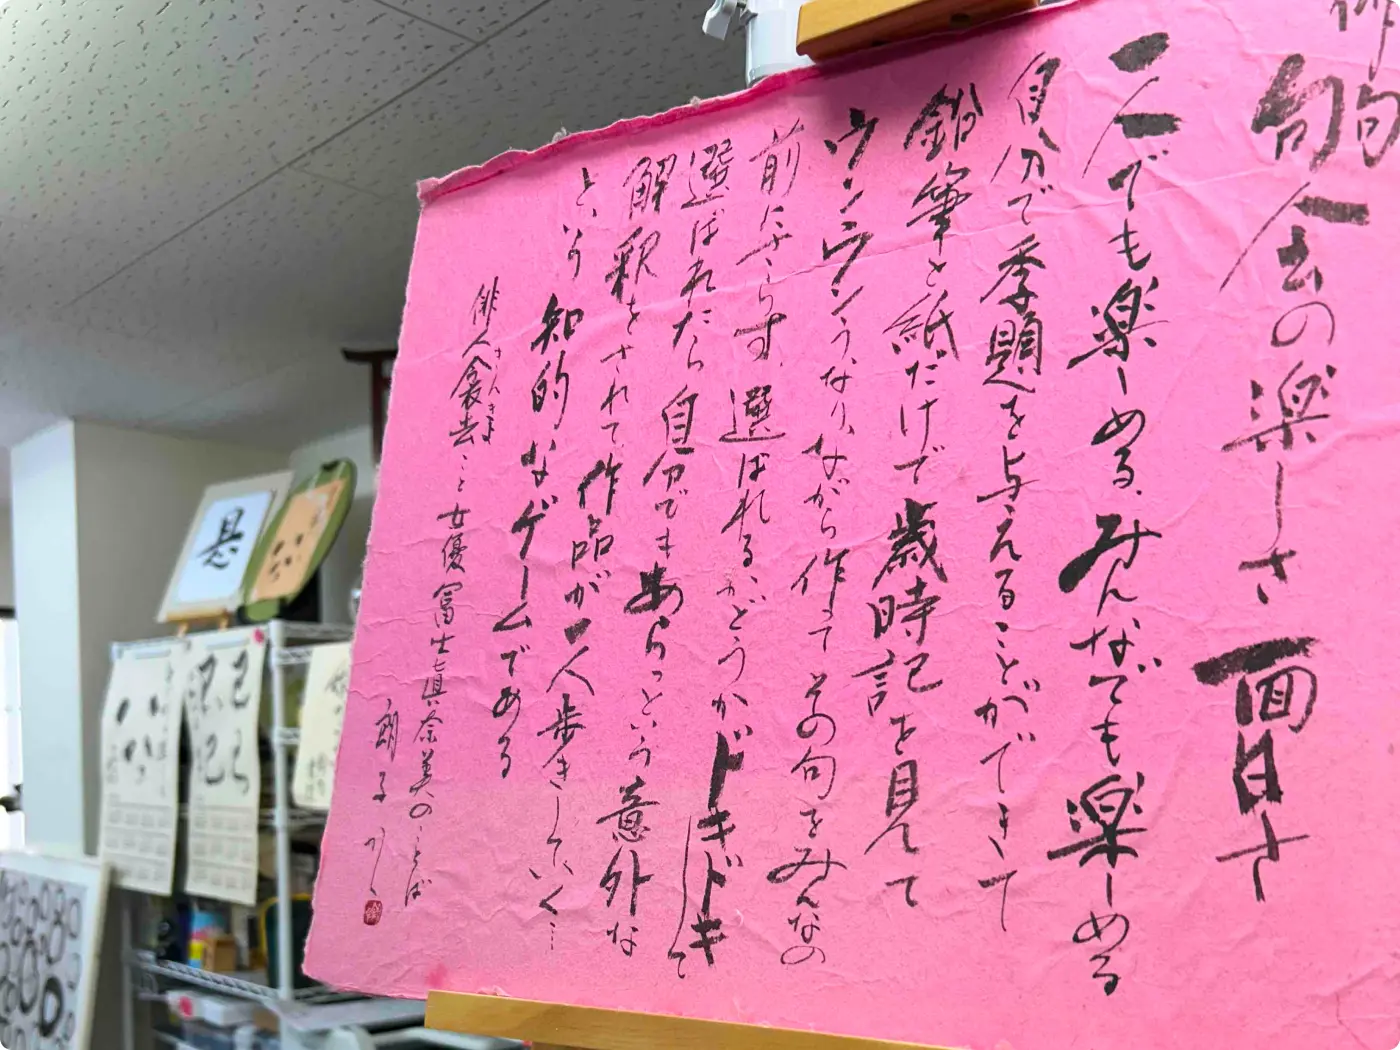 俳句
句会の楽しさ 面白さ
一人でも楽しめる、みんなでも楽しめる
自分で季題を与えることができて
鉛筆と紙だけで歳時記を見て
ウンウンうなりながら作って その句をみんなの
前にさらす、選ばれるかどうかドキドキして
選ばれたら 自分でもあらっという意外な
解釈をされて、作品が一人歩きしていく…
という 知的なゲームである
俳人衾去こと女優冨士眞奈美のことば
さんきょ